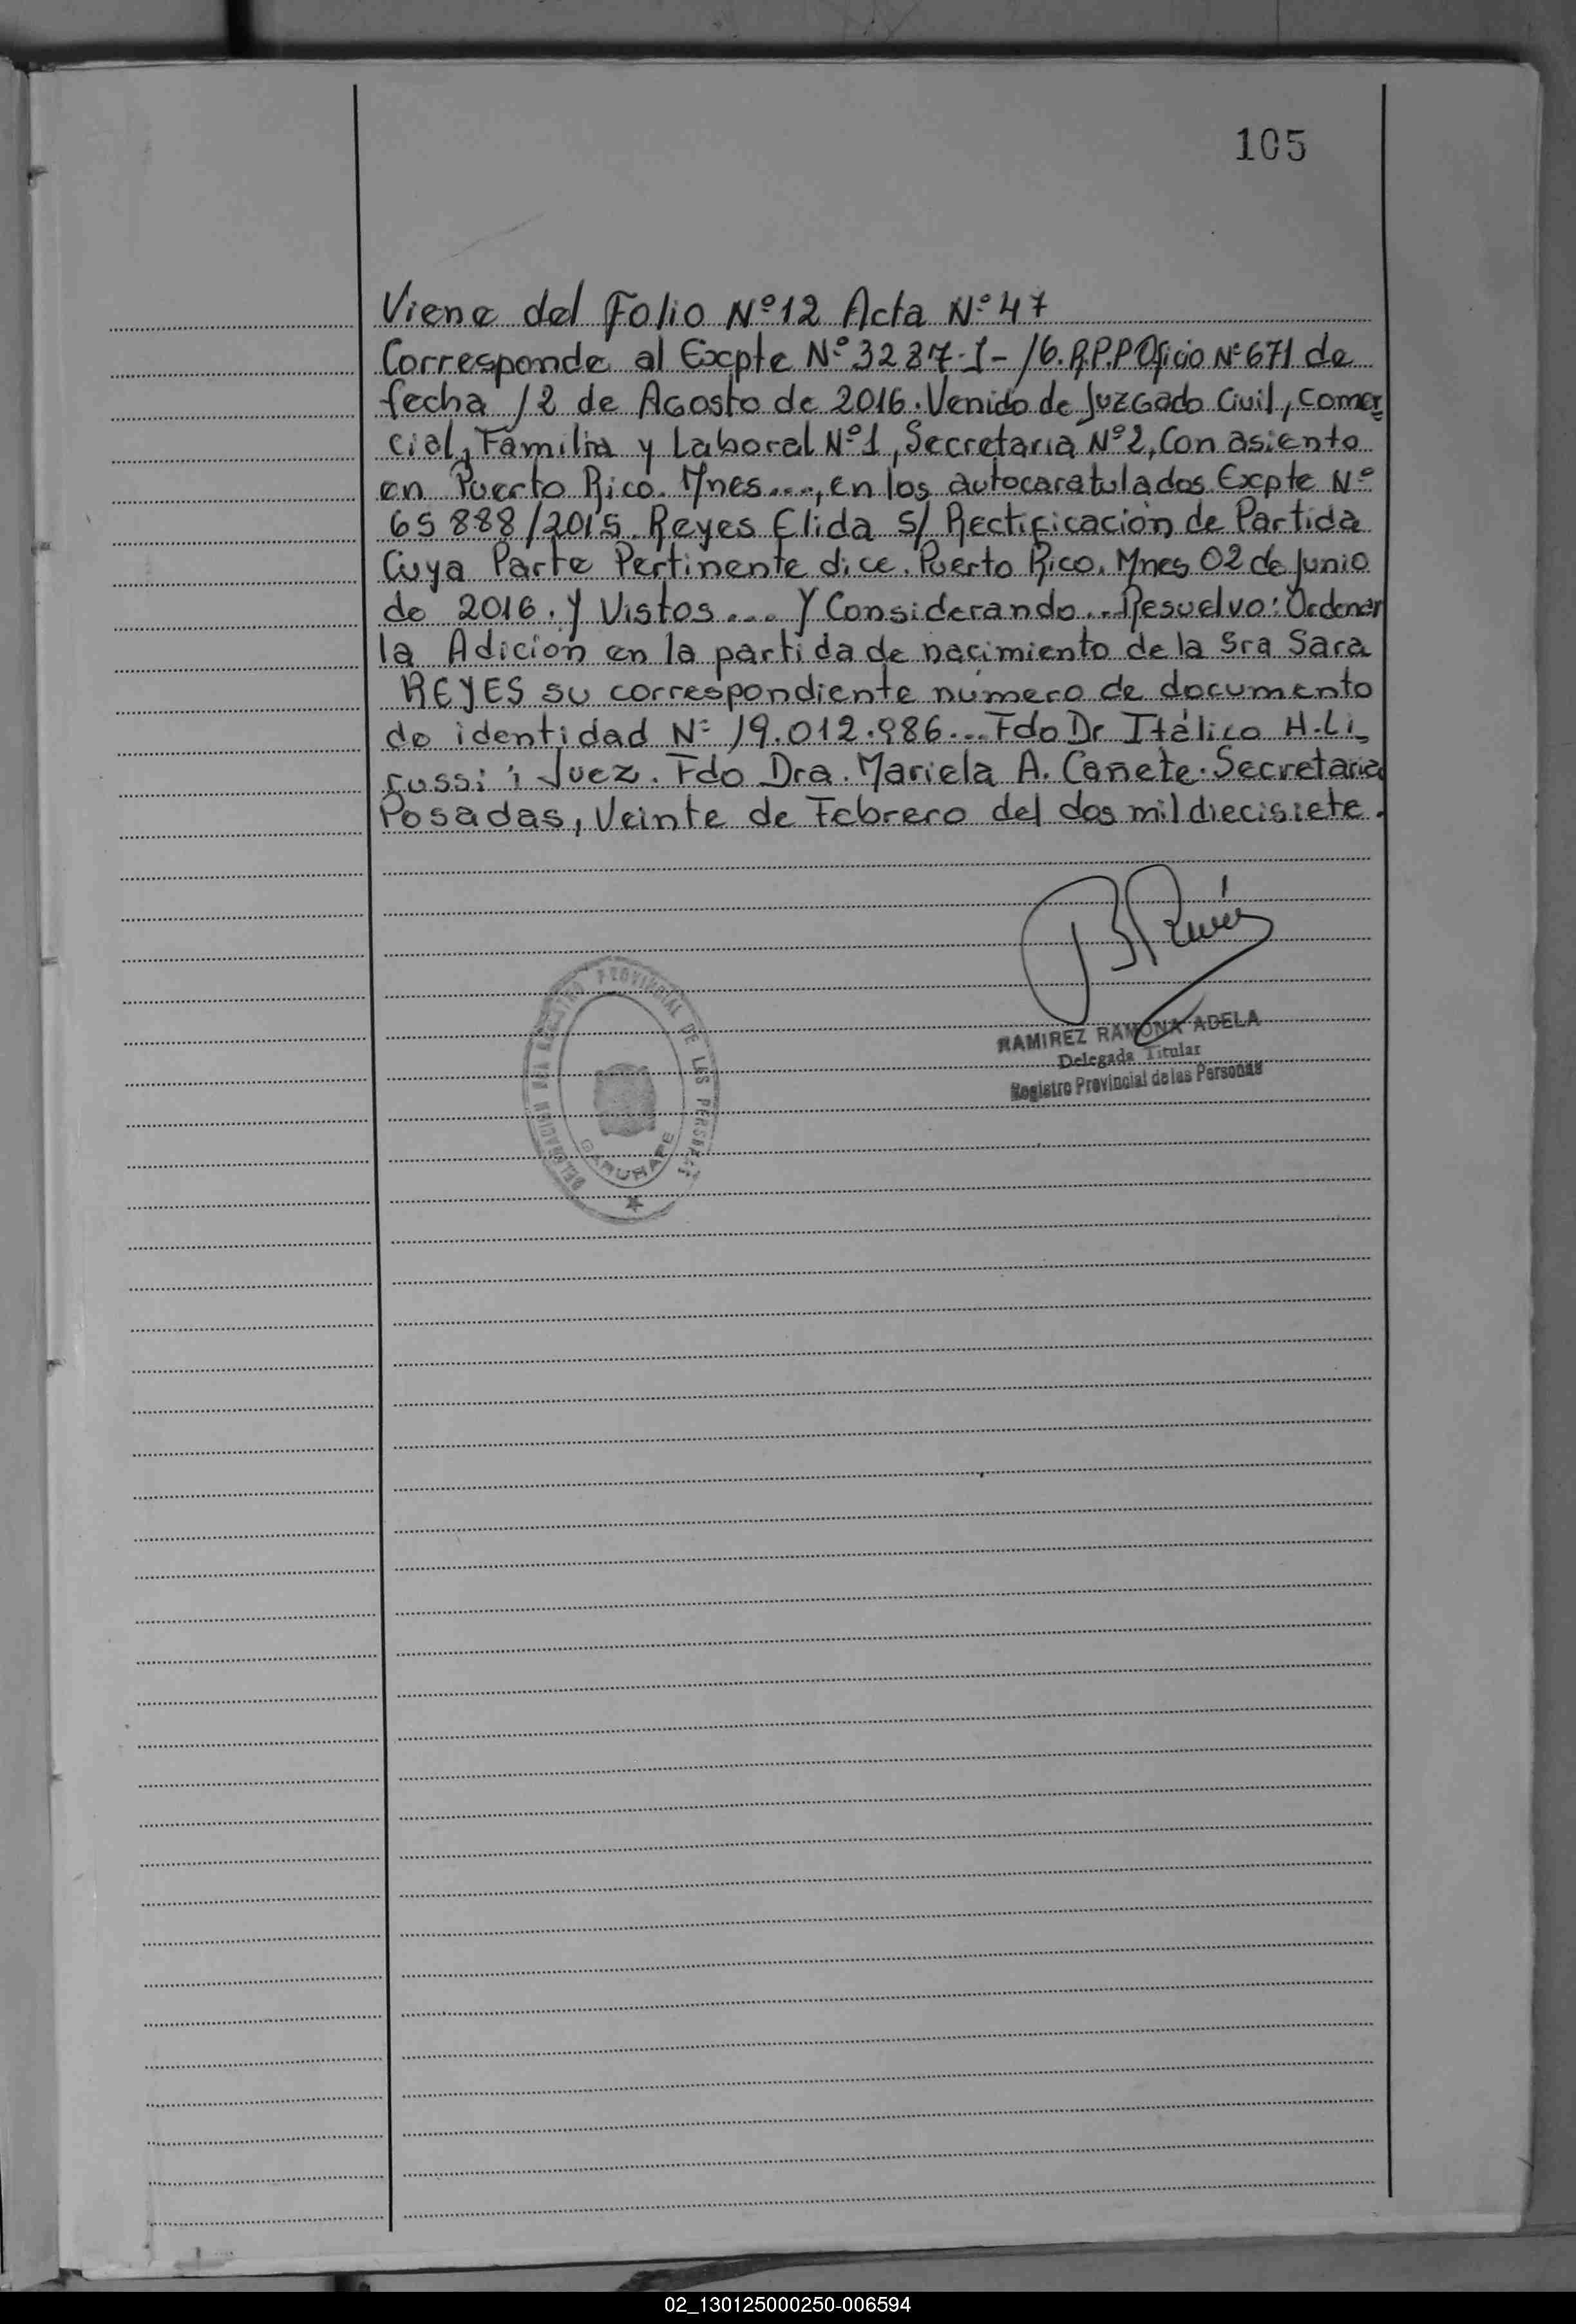 105
Viene del Folio Nº 12 Acta Nº 47
Corresponde al Expte Nº 3287-I-16. R.P.P Oficio Nº 671 de
fecha 12 de Agosto de 2016. Venido de Juzgado Civil, Comer=
cial, Familia y Laboral Nº 1, Secretaria Nº 2, Con asiento
en Puerto Rico. Mnes...., en los autocaratulados Expte Nº
65888/2015. Reyes Elida S/ Rectificación de Partida
Cuya Parte Pertinente dice. Puerto Rico. Mnes 02 de Junio
de 2016. Y Vistos.... Y Considerando... Resuelvo: Ordenar
la Adición en la partida de nacimiento de la Sra Sara
REYES su correspondiente número de documento
de identidad Nº 19.012.986... Fdo Dr Itálico H. Li_
russi; Juez. Fdo Dra. Mariela A. Cañete. Secretaria
Posadas, Veinte de Febrero del dos mil diecisiete.
RAMIREZ RAMONA ADELA
Delegada Titular
Registro Provincial de las Personas
REGISTRO PROVINCIAL DE LAS PERSONAS
GARUHAPE
02_130125000250-006594